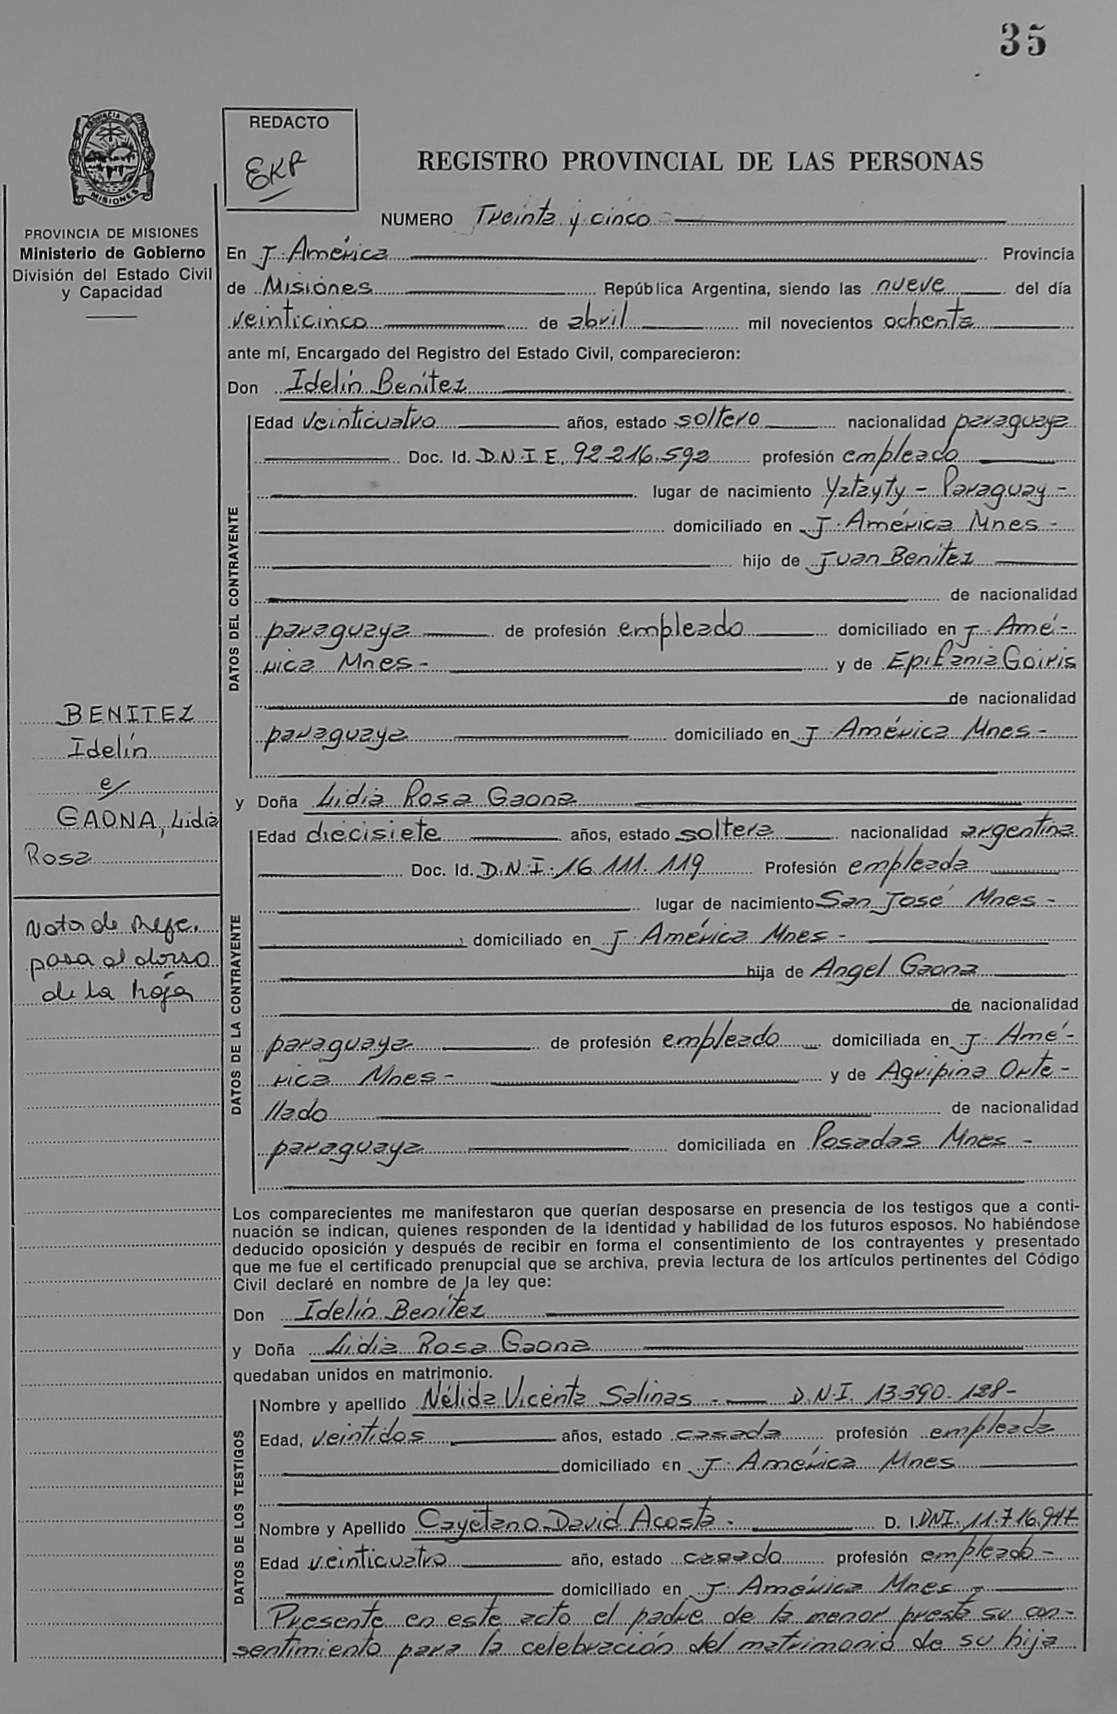 35
REDACTO
EKR
PROVINCIA DE
MISIONES
REGISTRO PROVINCIAL DE LAS PERSONAS
NUMERO Treinta y cinco
PROVINCIA DE MISIONES
Ministerio de Gobierno
División del Estado Civil
y Capacidad
En J. América Provincia
de Misiones República Argentina, siendo las nueve del día
veinticinco de abril mil novecientos ochenta
ante mí, Encargado del Registro del Estado Civil, comparecieron:
Don Idelín Benítez
DATOS DEL CONTRAYENTE
Edad veinticuatro años, estado soltero nacionalidad paraguaya
Doc. Id. D.N.I E. 92.216.592 profesión empleado
lugar de nacimiento Yatayty - Paraguay -
domiciliado en J. América Mnes -
hijo de Juan Benítez
de nacionalidad
paraguaya de profesión empleado domiciliado en J. Amé-
rica Mnes - y de Epifania Goiris
de nacionalidad
paraguaya domiciliado en J. América Mnes -
BENITEZ
Idelín
c/
GAONA, Lidia
Rosa
Nota de Refe.
pasa al dorso
de la hoja
y Doña Lidia Rosa Gaona
DATOS DE LA CONTRAYENTE
Edad diecisiete años, estado soltera nacionalidad argentina
Doc. Id. D.N.I. 16.111.119 Profesión empleada
lugar de nacimiento San José Mnes -
domiciliado en J. América Mnes -
hija de Angel Gaona
de nacionalidad
paraguaya de profesión empleado domiciliada en J. Amé-
rica Mnes - y de Agripina Orte-
llado de nacionalidad
paraguaya domiciliada en Posadas Mnes -
Los comparecientes me manifestaron que querían desposarse en presencia de los testigos que a conti-
nuación se indican, quienes responden de la identidad y habilidad de los futuros esposos. No habiéndose
deducido oposición y después de recibir en forma el consentimiento de los contrayentes y presentado
que me fue el certificado prenupcial que se archiva, previa lectura de los artículos pertinentes del Código
Civil declaré en nombre de la ley que:
Don Idelín Benítez
y Doña Lidia Rosa Gaona
quedaban unidos en matrimonio.
DATOS DE LOS TESTIGOS
Nombre y apellido Nélida Vicenta Salinas - D.N.I. 13.390.128-
Edad, veintidos años, estado casada profesión empleada
domiciliado en J. América Mnes
Nombre y Apellido Cayetano David Acosta - D. I. DNI. 11.716.947
Edad veinticuatro año, estado casado profesión empleado -
domiciliado en J. América Mnes -
Presente en este acto el padre de la menor presta su con-
sentimiento para la celebración del matrimonio de su hija